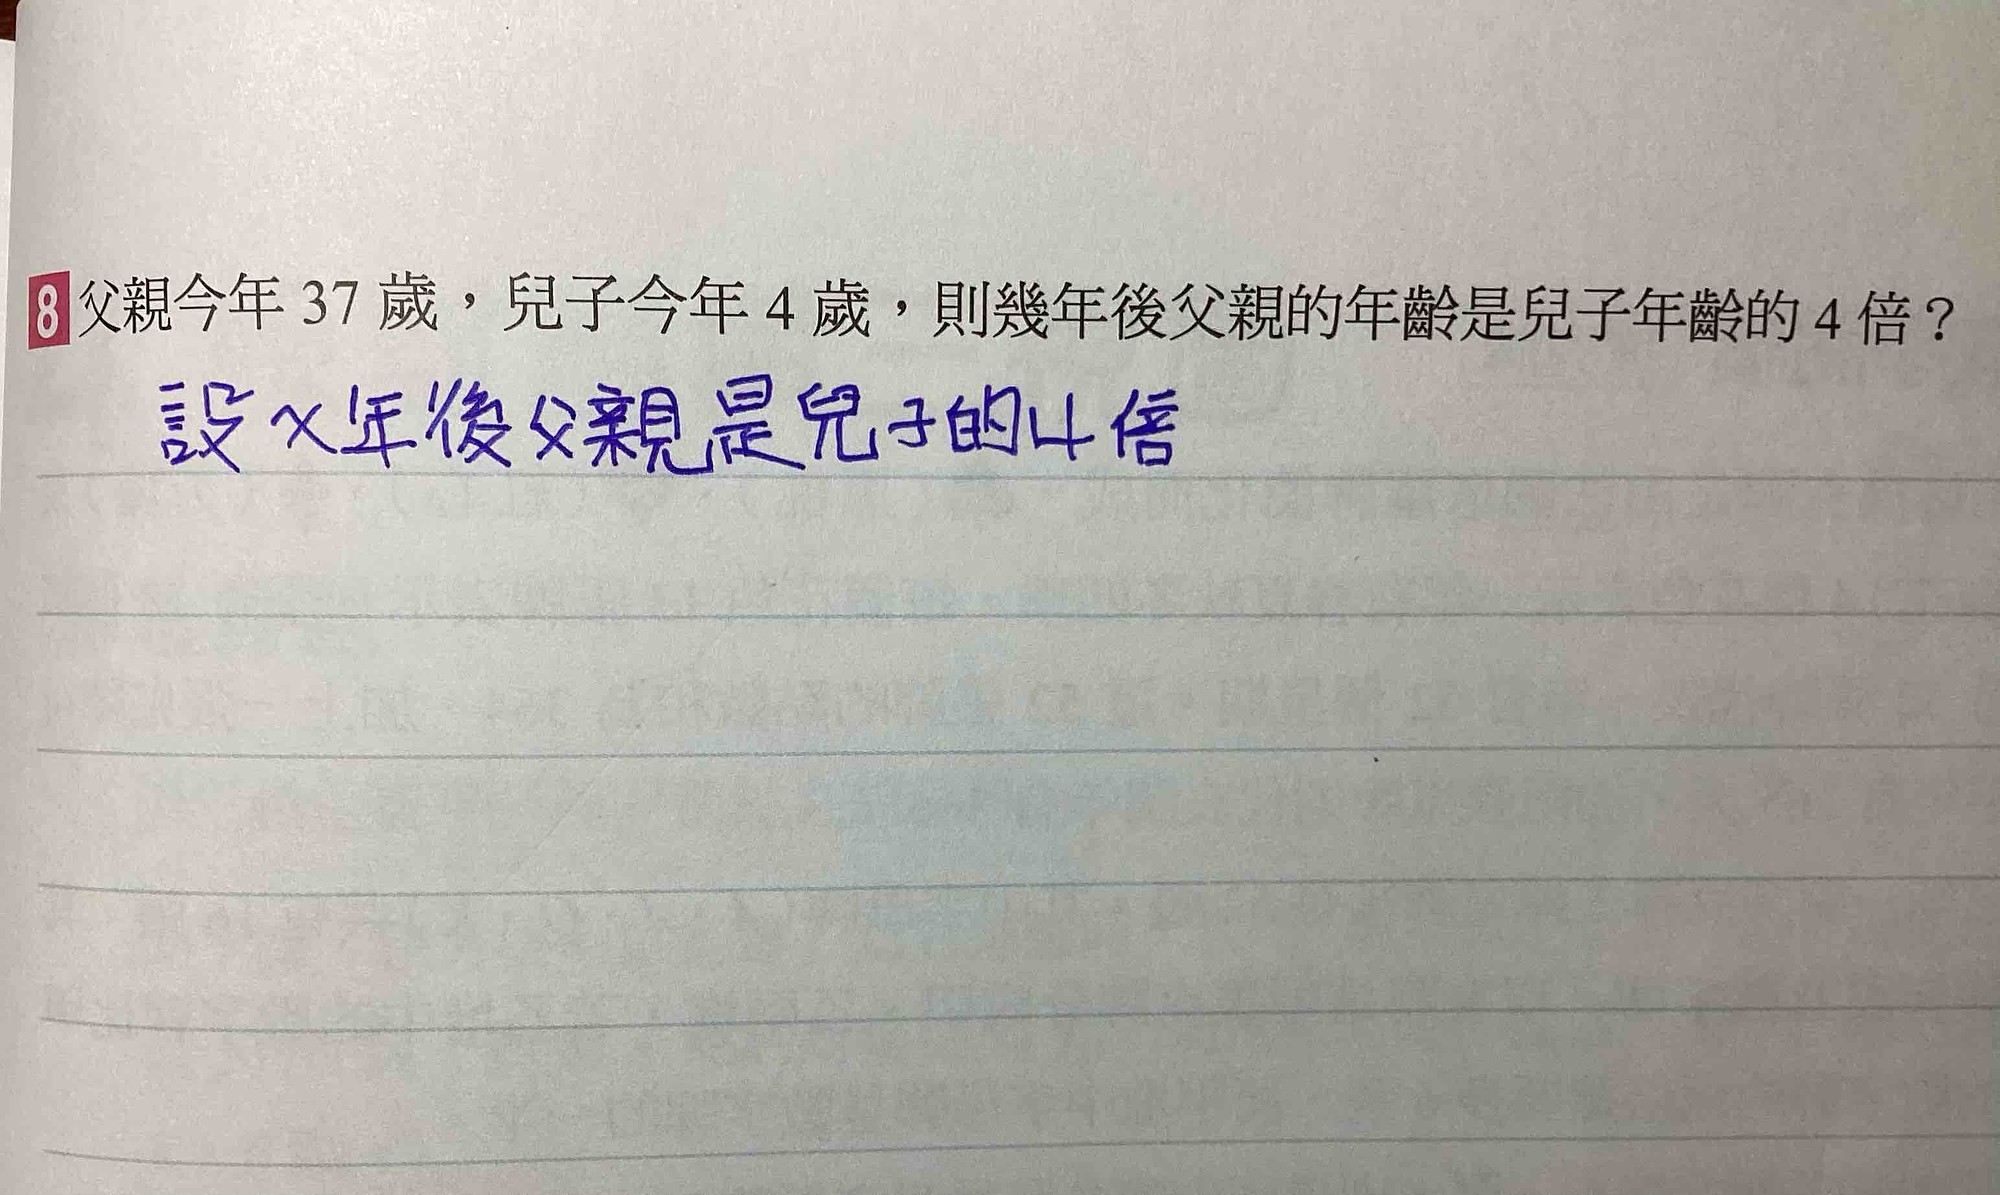 8 父親今年 37 歲，兒子今年 4 歲，則幾年後父親的年齡是兒子年齡的 4 倍？
設 x 年後父親是兒子的 4 倍